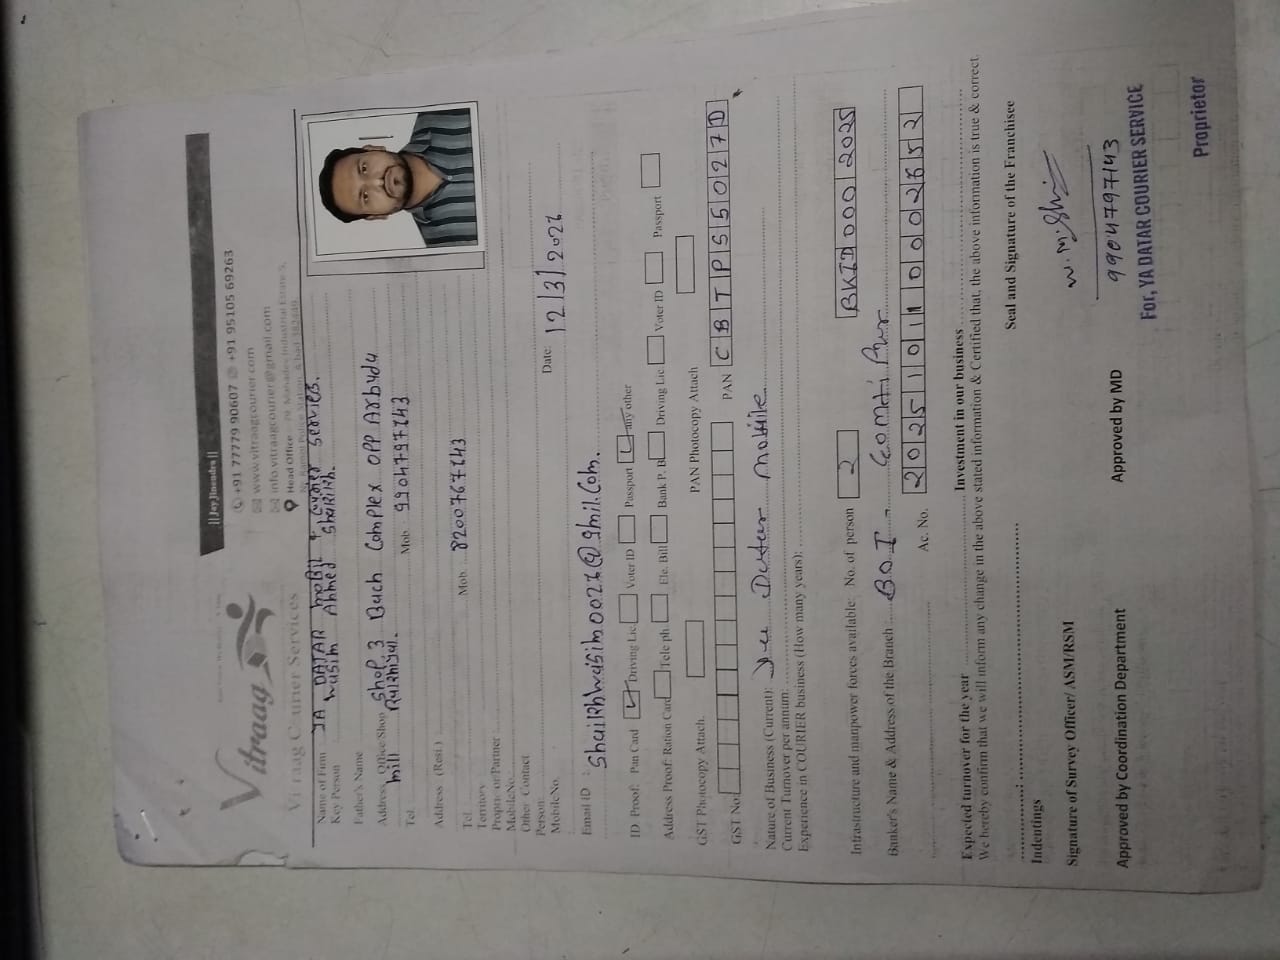 ||Jay Jinendra||
Vitraag
Vitraag Courier Services
+91 77779 90607 +91 95105 69263
www.vitraagcourier.com
info.vitraagcourier@gmail.com
Head Office
Name of Firm YA DATAR mobil
Key Person wasim Ahmed Shaikh.
Father's Name
Address Office/Shop Shop, 3 Buch Complex opp Arbuda
mill
Tel Mob : 9904797143
Address (Resi.)
Tel Mob : 8200767143
Territory
Propri- or/Partner
Mobile No.
Other Contact
Person:
Mobile No. Date: 12/3/2026
Email ID :
ID. Proof: Pan Card Driving Lic Voter ID Passport any other
Address Proof: Ration Card Tele ph. Ele. Bill Bank P. B Driving Lic. Voter ID Passport
GST Photocopy Attach. PAN Photocopy Attach
GST No. PAN CBTPS5027D
Nature of Business (Current): Datar mobile
Current Turnover per annum:
Experience in COURIER business (How many years):
Infrastructure and manpower forces available: No. of person 2 BKID0002025
Banker's Name & Address of the Branch BOI - Gomti Pur
Ac. No.
Expected turnover for the year Investment in our business
We hereby confirm that we will inform any change in the above stated information & Certified that, the above information is true & correct.
Seal and Signature of the Franchisee
Indentings
Signature of Survey Officer/ ASM/RSM
9904797143
Approved by Coordination Department Approved by MD
For, YA DATAR COURIER SERVICE
Proprietor